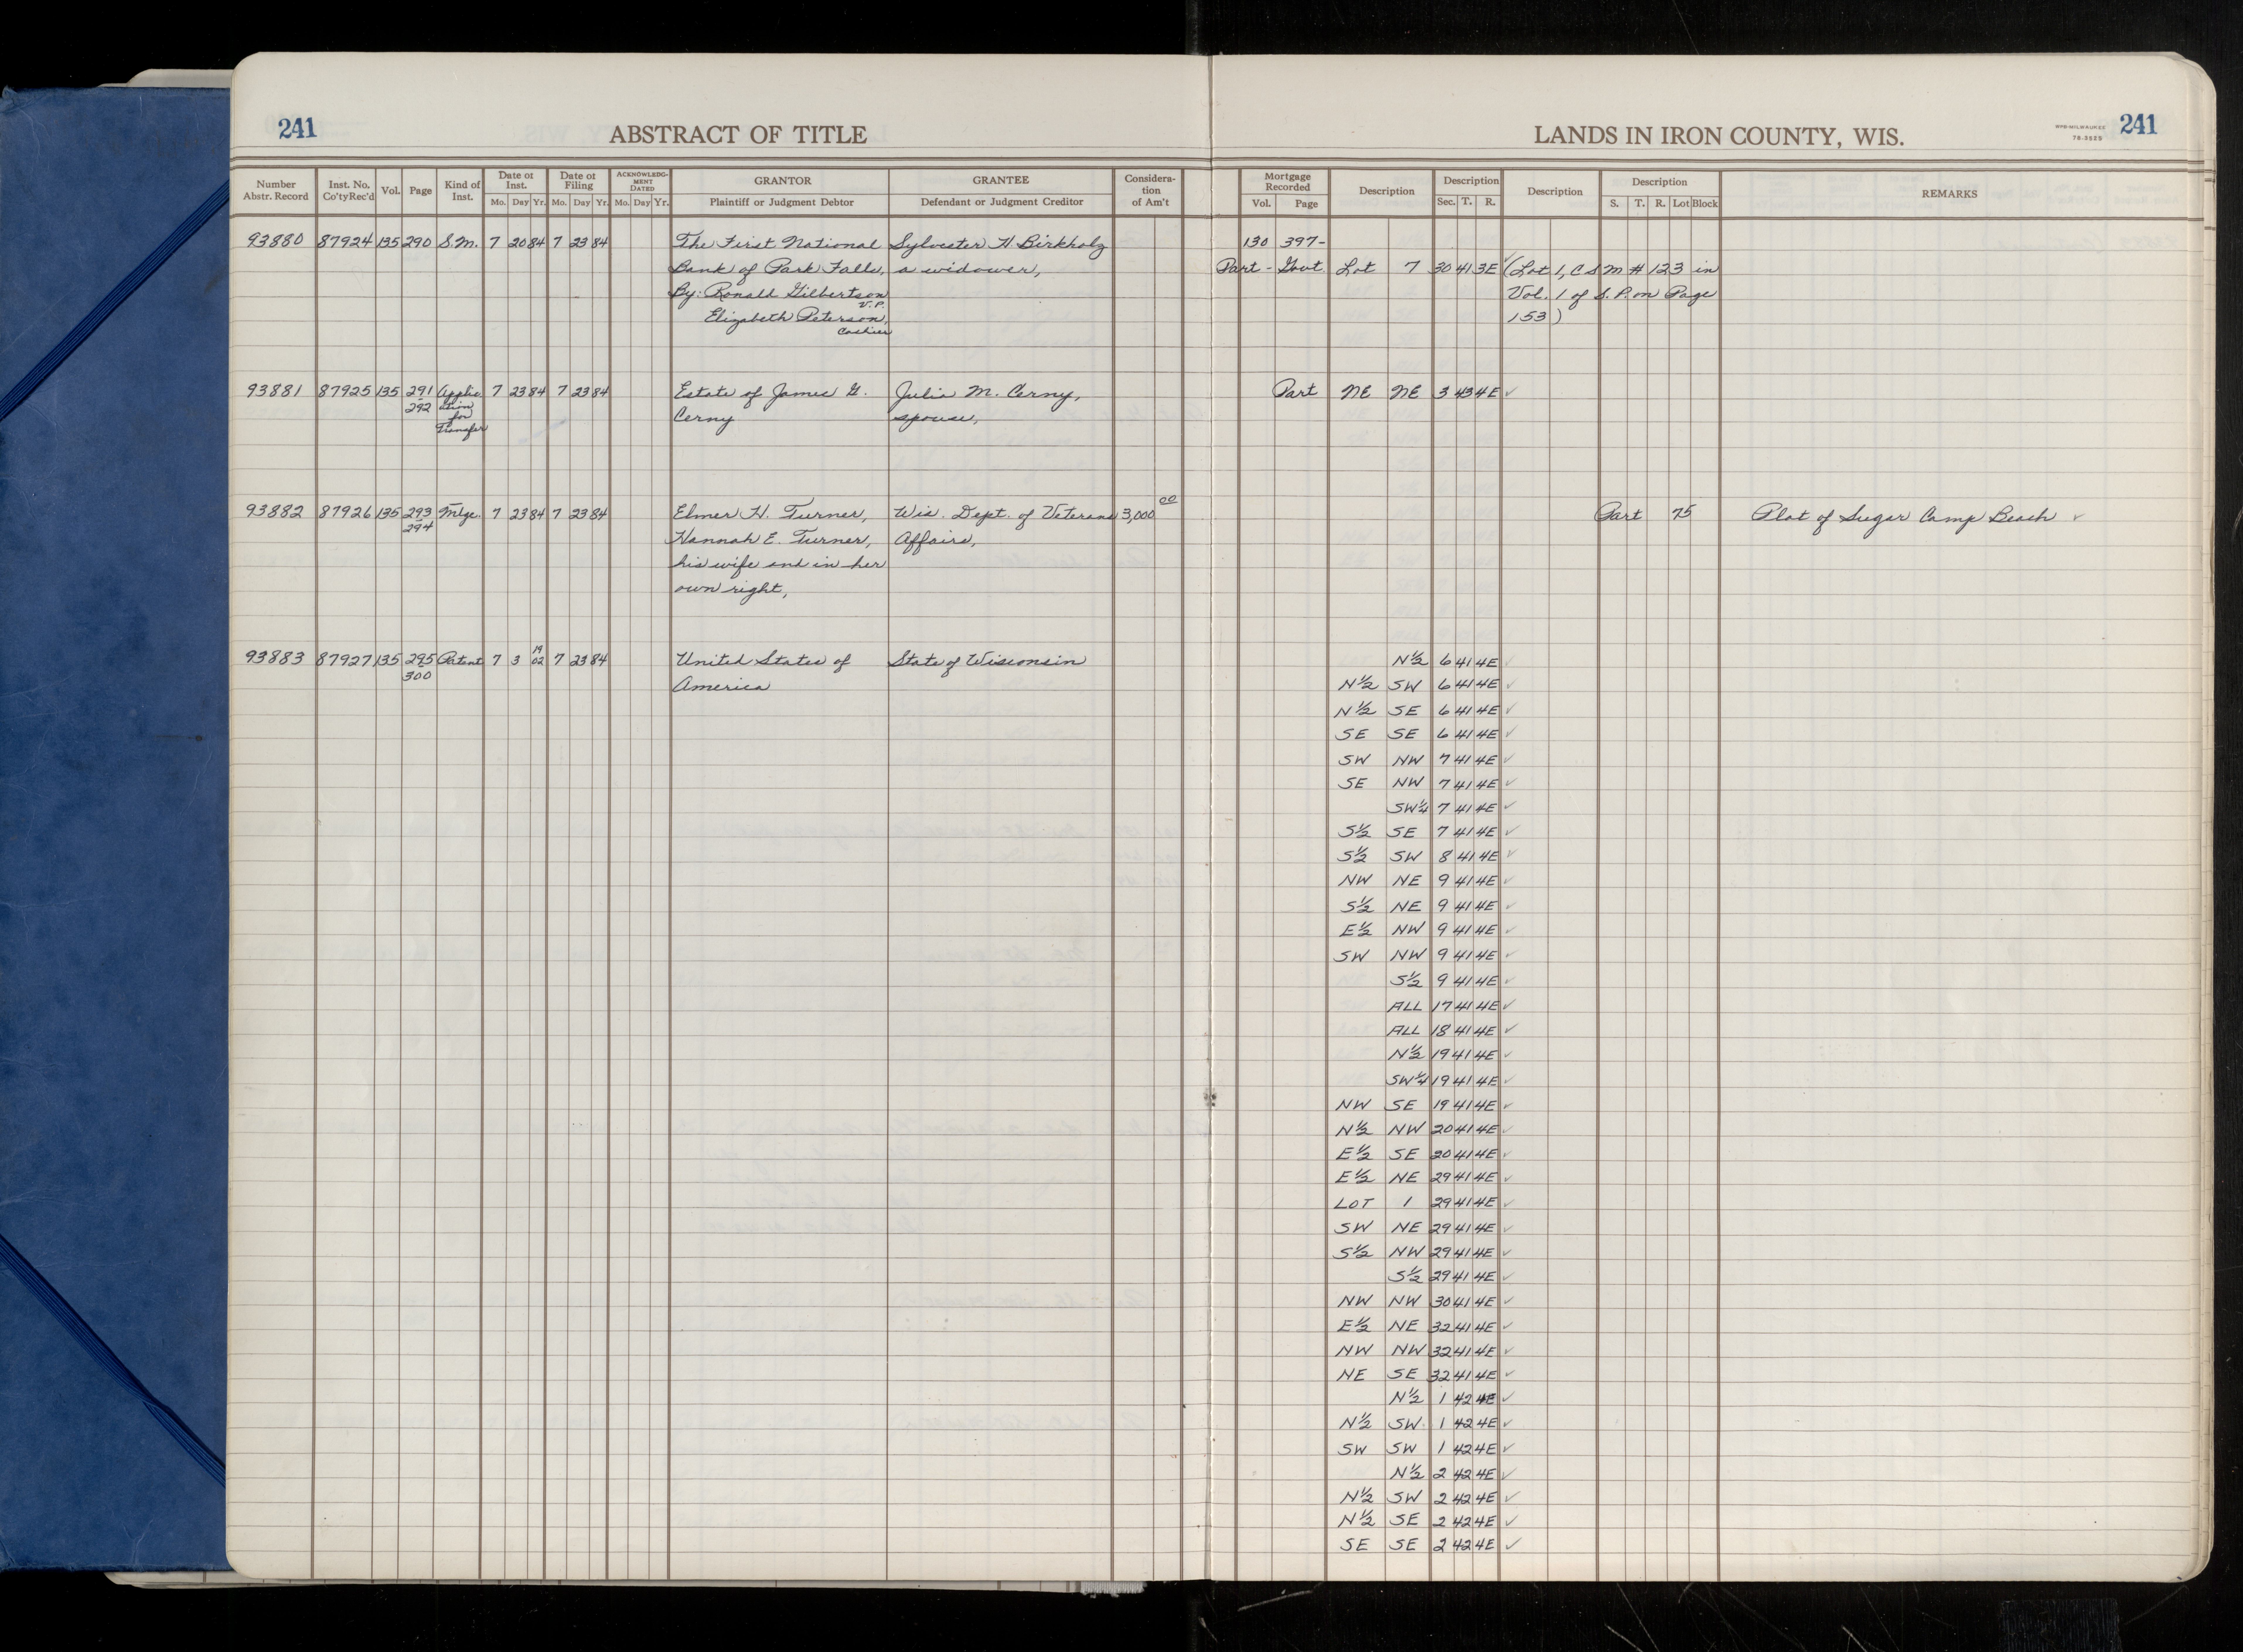 241 ABSTRACT OF TITLE LANDS IN IRON COUNTY, WIS. 241
WPB-MILWAUKEE
78-3525
Number Abstr. Record Inst. No. Co'tyRec'd Vol. Page Kind of Inst. Date of Inst. Mo. Day Yr. Date of Filing Mo. Day Yr. ACKNOWLEDGMENT DATED Mo. Day Yr. GRANTOR Plaintiff or Judgment Debtor GRANTEE Defendant or Judgment Creditor Consideration of Am't Mortgage Recorded Vol. Page Description Description Sec. T. R. Description Description S. T. R. Lot Block REMARKS
93880 87924 135 290 S.M. 7 20 84 7 23 84 The First National Sylvester H. Birkholz 130 397-
Bank of Park Falls, a widower, Part - Govt Lot 7 30 41 3E (Lot 1, CSM # 123 in
By: Ronald Gilbertson Vol. 1 of S. P. on Page
V.P.
Elizabeth Peterson, 153)
Cashier
93881 87925 135 291 Applic 7 23 84 7 23 84 Estate of James G. Julia M. Cerny, Part NE NE 3 43 4E ✓
292 ation
for Cerny spouse,
Transfer
93882 87926 135 293 Mtge. 7 23 84 7 23 84 Elmer H. Turner, Wis. Dept. of Veterans 3,000 00 Part 75 Plat of Sugar Camp Beach ✓
294
Hannah E. Turner, Affairs,
his wife and in her
own right,
93883 87927 135 295 Patent 7 3 19 02 7 23 84 United States of State of Wisconsin N½ 6 41 4E ✓
300 America N½ SW 6 41 4E ✓
N½ SE 6 41 4E ✓
SE SE 6 41 4E ✓
SW NW 7 41 4E ✓
SE NW 7 41 4E ✓
SW¼ 7 41 4E ✓
S½ SE 7 41 4E ✓
S½ SW 8 41 4E ✓
NW NE 9 41 4E ✓
S½ NE 9 41 4E ✓
E½ NW 9 41 4E ✓
SW NW 9 41 4E ✓
S½ 9 41 4E ✓
ALL 17 41 4E ✓
ALL 18 41 4E ✓
N½ 19 41 4E ✓
SW¼ 19 41 4E ✓
NW SE 19 41 4E ✓
N½ NW 20 41 4E ✓
E½ SE 20 41 4E ✓
E½ NE 29 41 4E ✓
LOT 1 29 41 4E ✓
SW NE 29 41 4E ✓
S½ NW 29 41 4E ✓
S½ 29 41 4E ✓
NW NW 30 41 4E ✓
E½ NE 32 41 4E ✓
NW NW 32 41 4E ✓
NE SE 32 41 4E ✓
N½ 1 42 4E ✓
N½ SW 1 42 4E ✓
SW SW 1 42 4E ✓
N½ 2 42 4E ✓
N½ SW 2 42 4E ✓
N½ SE 2 42 4E ✓
SE SE 2 42 4E ✓